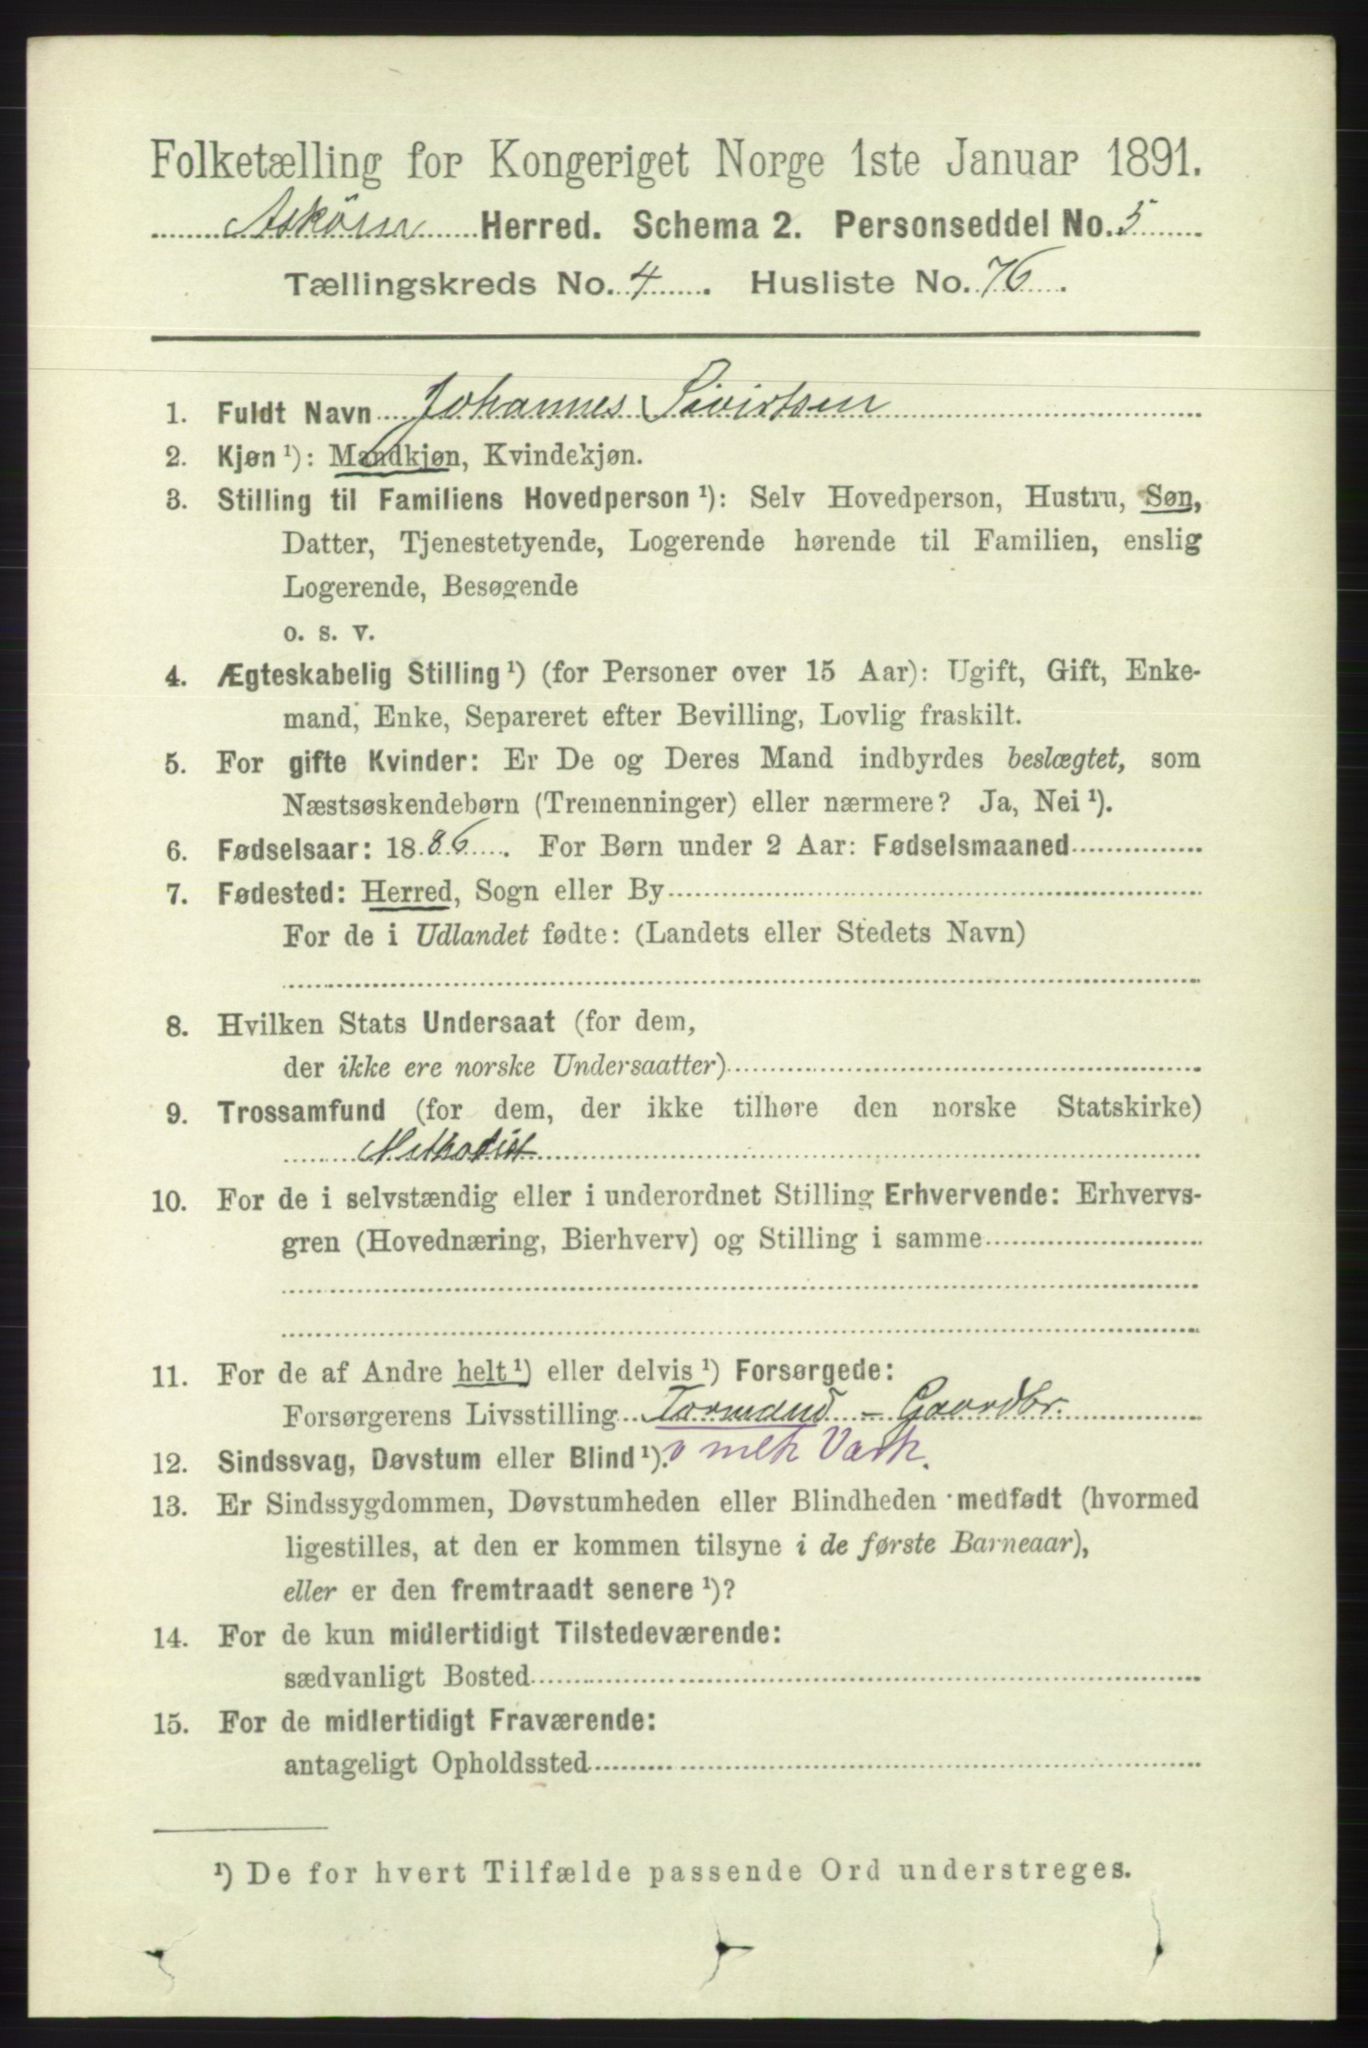 Folketælling for Kongeriget Norge 1ste Januar 1891.
Askøen Herred. Schema 2. Personseddel No. 5
Tællingskreds No. 4. Husliste No. 76.
1. Fuldt Navn Johannes Sivertsen
2. Kjøn ¹): Mandkjøn, Kvindekjøn.
3. Stilling til Familiens Hovedperson ¹): Selv Hovedperson, Hustru, Søn,
Datter, Tjenestetyende, Logerende hørende til Familien, enslig
Logerende, Besøgende
o. s. v.
4. Ægteskabelig Stilling ¹) (for Personer over 15 Aar): Ugift, Gift, Enke-
mand, Enke, Separeret efter Bevilling, Lovlig fraskilt.
5. For gifte Kvinder: Er De og Deres Mand indbyrdes beslægtet, som
Næstsøskendebørn (Tremenninger) eller nærmere? Ja, Nei ¹).
6. Fødselsaar: 1886. For Børn under 2 Aar: Fødselsmaaned
7. Fødested: Herred, Sogn eller By
For de i Udlandet fødte: (Landets eller Stedets Navn)
8. Hvilken Stats Undersaat (for dem,
der ikke ere norske Undersaatter)
9. Trossamfund (for dem, der ikke tilhøre den norske Statskirke)
Methodist
10. For de i selvstændig eller i underordnet Stilling Erhvervende: Erhvervs-
gren (Hovednæring, Bierhverv) og Stilling i samme
11. For de af Andre helt ¹) eller delvis ¹) Forsørgede:
Forsørgerens Livsstilling - Gaardbr.
12. Sindssvag, Døvstum eller Blind ¹).
13. Er Sindssygdommen, Døvstumheden eller Blindheden medfødt (hvormed
ligestilles, at den er kommen tilsyne i de første Barneaar),
eller er den fremtraadt senere ¹)?
14. For de kun midlertidigt Tilstedeværende:
sædvanligt Bosted
15. For de midlertidigt Fraværende:
antageligt Opholdssted
¹) De for hvert Tilfælde passende Ord understreges.